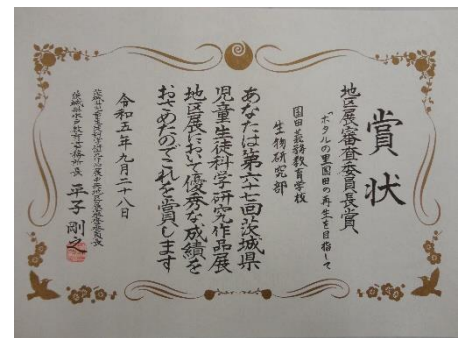 賞状
地区展審査委員長賞
「ホタルの里国田の再生を目指して」
国田義務教育学校
生物研究部
あなたは第六十七回茨城県
児童生徒科学研究作品展
地区展において優秀な成績を
おさめたのでこれを賞します
令和五年九月二十八日
茨城県水戸教育事務所長 平子剛之